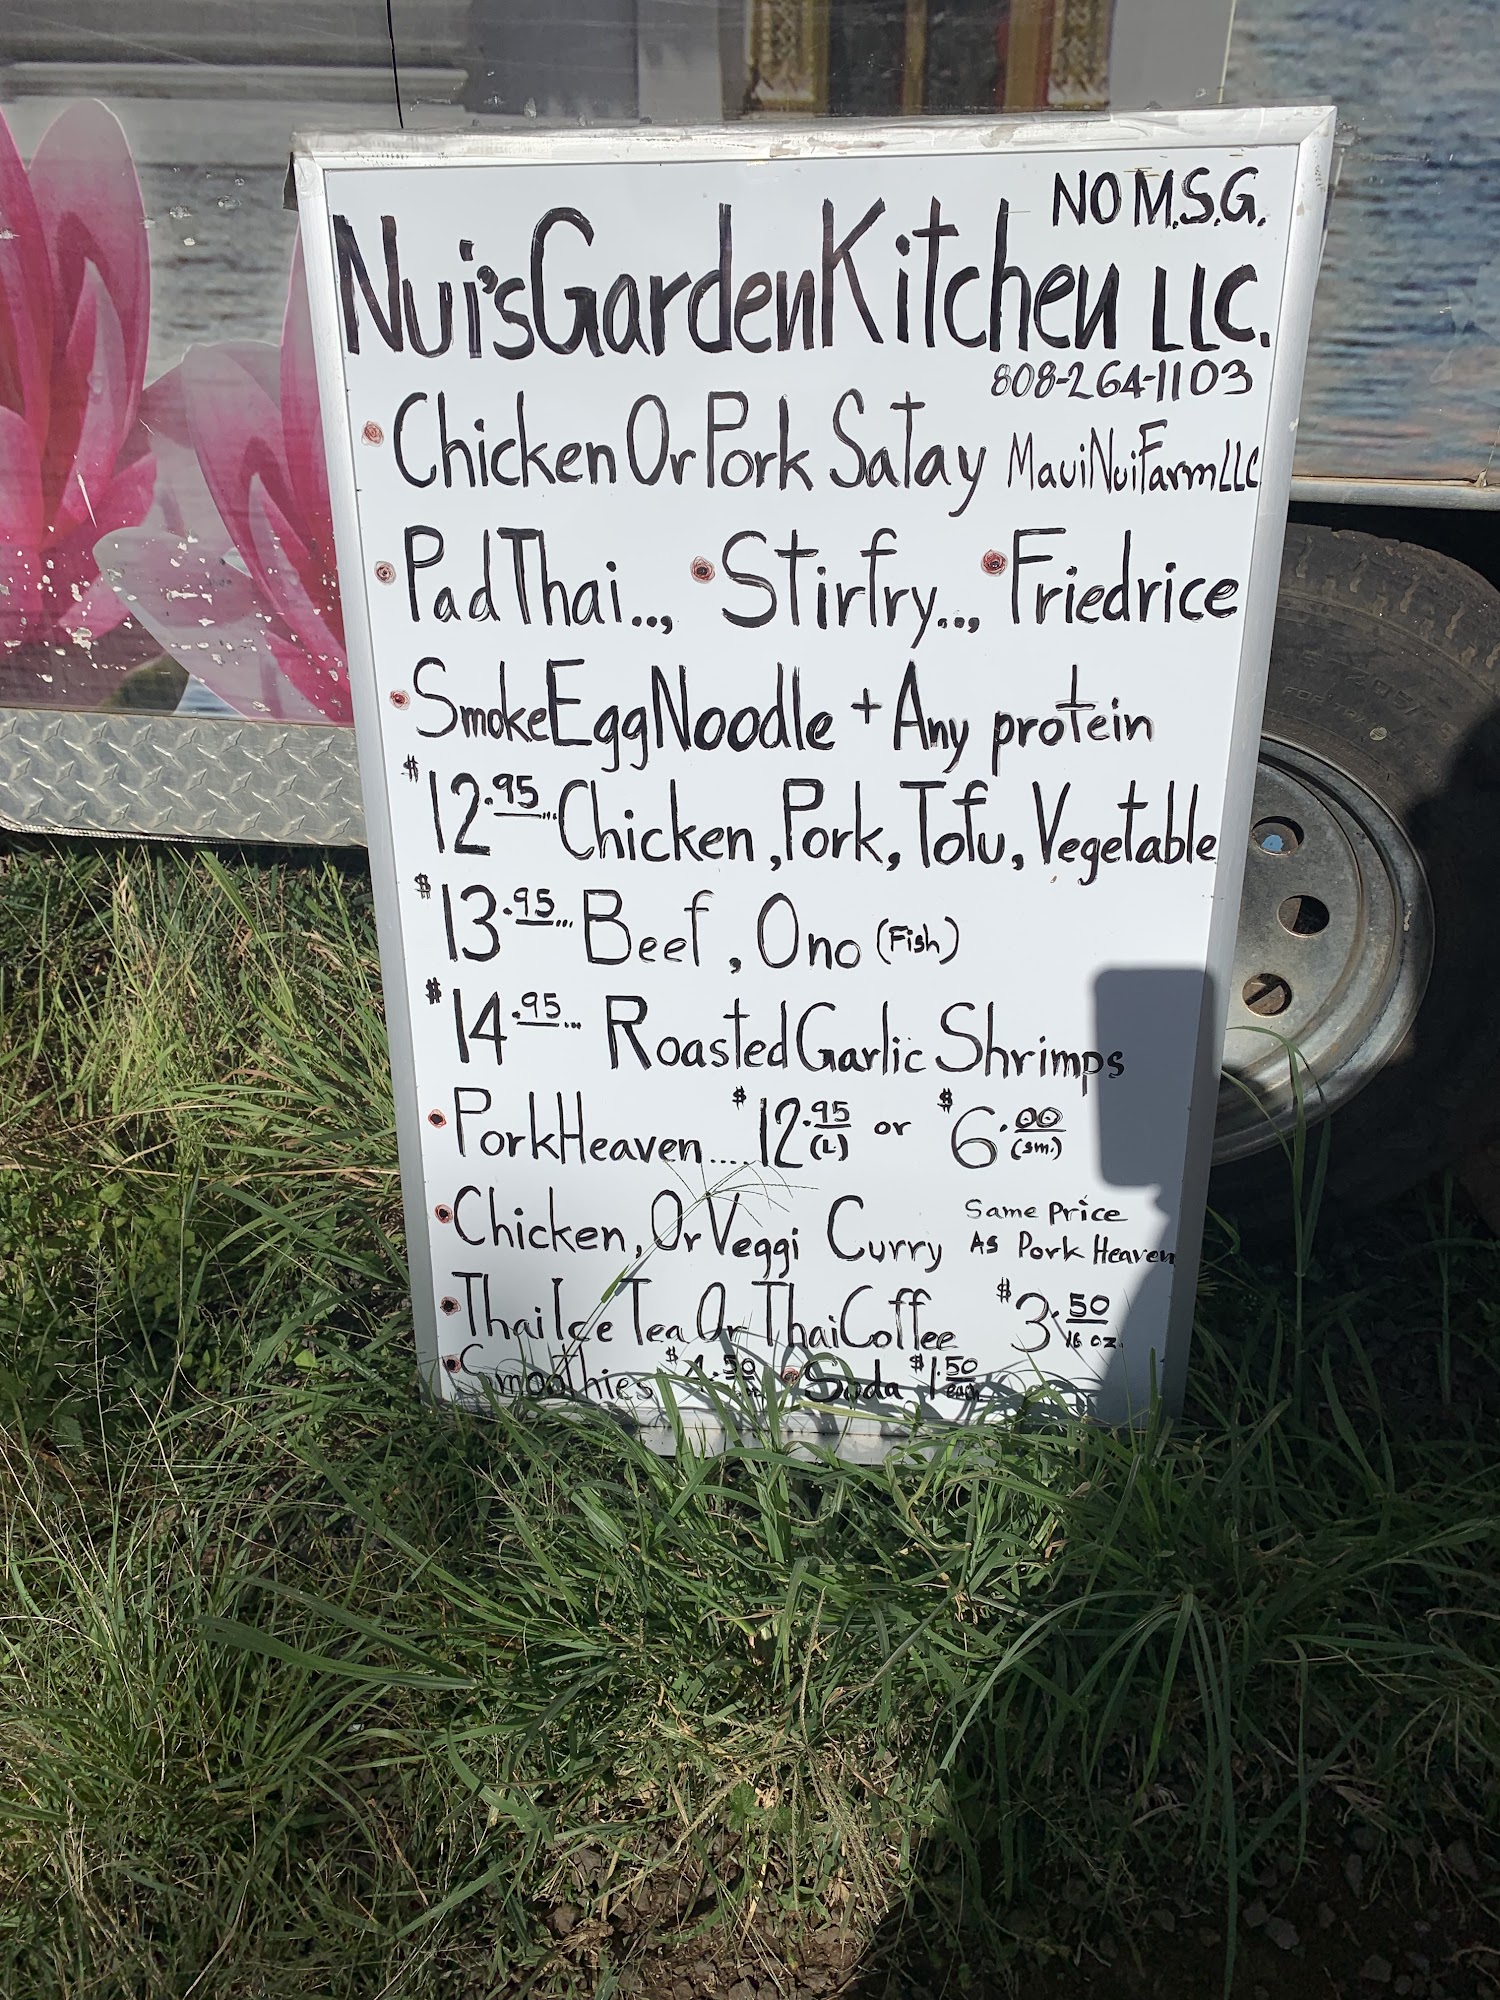 NO M.S.G.
Nui's Garden Kitchen LLC.
808-264-1103
• Chicken Or Pork Satay Maui Nui Farm LLC
• Pad Thai..., • Stirfry..., • Friedrice
• Smoke Egg Noodle + Any protein
$12.95... Chicken, Pork, Tofu, Vegetable
$13.95... Beef, Ono (Fish)
$14.95... Roasted Garlic Shrimps
• Pork Heaven.... $12.95 (L) or $6.00 (sm.)
• Chicken, Or Veggi Curry Same Price
As Pork Heaven
• Thai Ice Tea Or Thai Coffee $3.50 16 oz.
• Smoothies • Soda $1.50 each